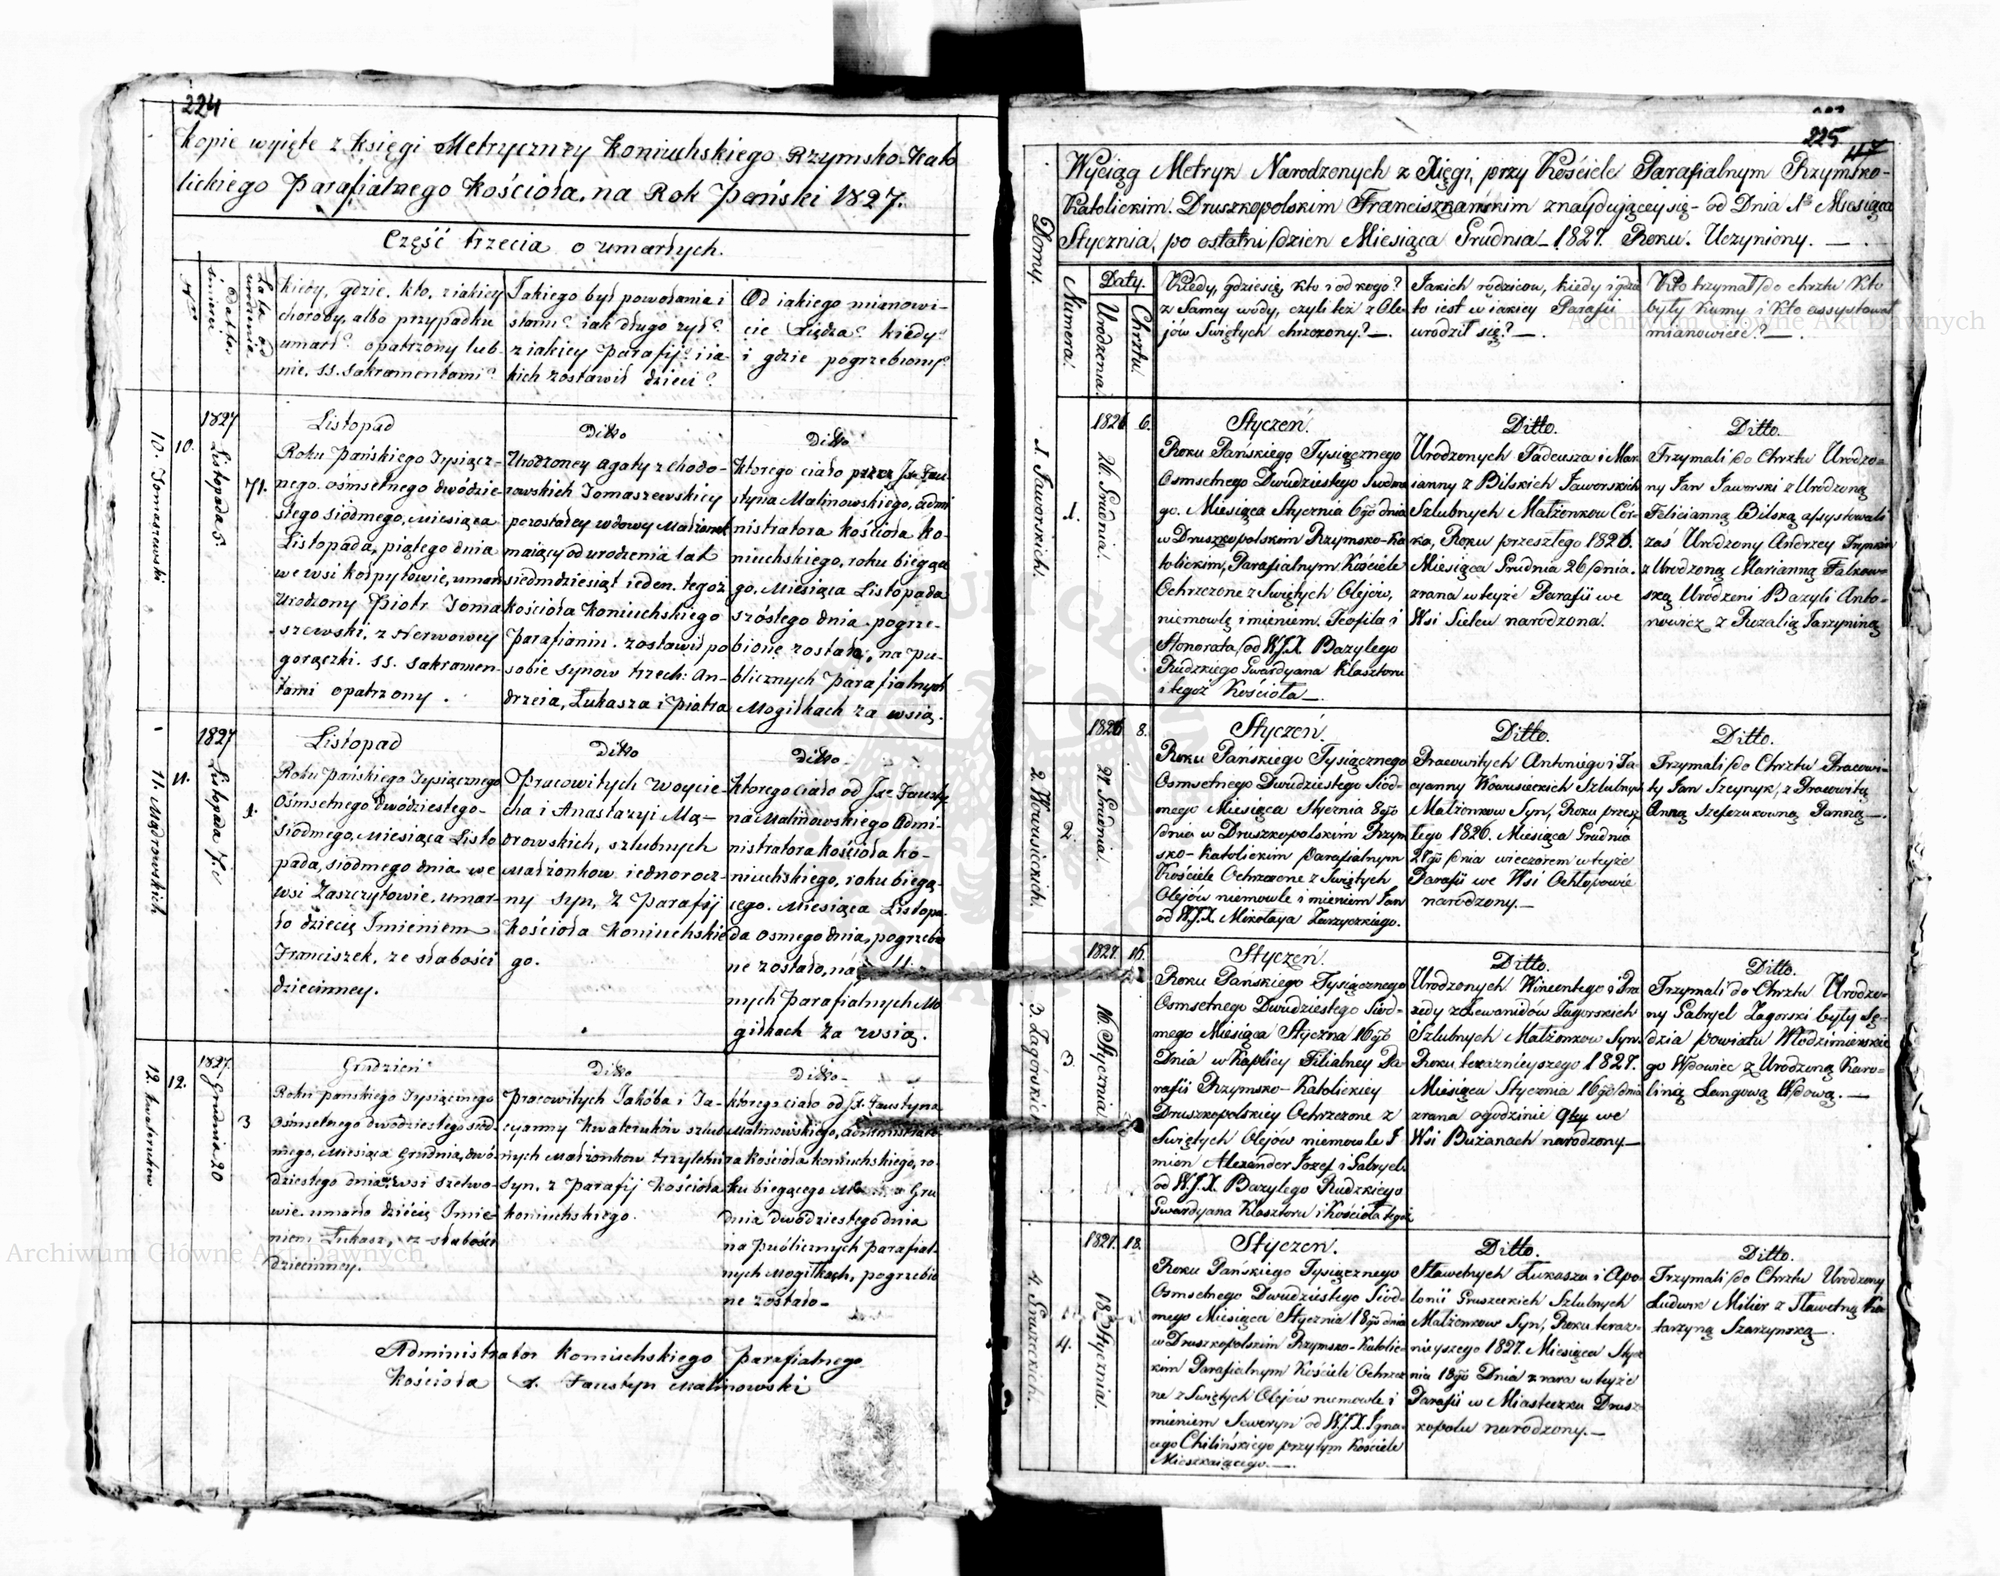 224
Kopie wyięte z Księgi Metryczney Koniuchskiego Rzymsko-Kato
lickiego Parafialnego Kościoła, na Rok Pański 1827.
Część trzecia o umarłych.
Nro
Data śmierci
Lata od urodzenia
kiedy, gdzie, kto, z iakiey
choroby, albo przypadku
umarł? opatrzony lub
nie, SS. Sakramentami?
Jakiego był powołania i
stanu? iak długo żył?
z iakiey Parafij? i ia-
kich zostawił dzieci?
Od iakiego mianowi-
cie Xiędza? kiedy?
i gdzie pogrzebiony?
10. Tomaszewski
10.
1827
Listopada 5.
71.
Listopad
Roku Pańskiego Tysiącz-
nego ośmsetnego dwódzie-
stego siódmego, Miesiąca
Listopada, piątego dnia
we wsi Kołpytowie, umarł
Urodzony Piotr Toma
szewski, z Nerwowey
gorączki. SS. Sakramen-
tami opatrzony.
Ditto
Urodzoney Agaty z Chodo-
rowskich Tomaszewskiey
pozostałey wdowy Małżonek
maiący od urodzenia lat
siedmdziesiąt ieden. tegoż
Kościoła Koniuchskiego
Parafianin. zostawił po
sobie synow trzech: An-
drzeia, Łukasza i Piotra
Ditto
ktorego ciało przez Jx Fau-
styna Malinowskiego, admi
nistratora Kościoła Ko-
niuchskiego, roku biegące
go, Miesiąca Listopada
szóstego dnia pogrze-
bione zostało, na pu-
blicznych Parafialnych
Mogiłkach za wsią.
11. Mądrowskich
11.
1827
Listopada 7.
1.
Listopad
Roku Pańskiego Tysiącznego
Ośmsetnego dwódziestego-
siódmego, Miesiąca Listo
pada, siódmego dnia we
wsi Zaszczytowie, umar-
ło dziecię Imieniem
Franciszek, ze słabości
dziecinney.
Ditto
Pracowitych Woycie-
cha i Anastazyi Mą-
drowskich, szlubnych
małżonkow iednorocz-
ny syn, z Parafij
Kościoła Koniuchskie
go.
Ditto
ktorego ciało od Jxe Fausty
na Malinowskiego Admi-
nistratora Kościoła Ko-
niuchskiego, roku bieżą-
cego, Miesiąca Listopa-
da osmego dnia, pogrzebio
ne zostało, na
nych Parafialnych Mo
giłkach za wsią.
12. Kwaterukow
12.
1827.
Grudnia 20
3
Grudzień
Roku Pańskiego Tysiącznego
Ośmsetnego dwódziestego siód-
mego, Miesiąca Grudnia, dwó-
dziestego dnia, we wsi Szelwo-
wie umarło dziécię Imie-
niem Łukasz, ze słabości
dziecinney.
Ditto
Pracowitych Jakóba i Ja-
cyanny Kwaterukow szlub-
nych Małżonkow trzyletni
syn, z Parafij Kościoła
Koniuchskiego.
Ditto
ktorego ciało od Jx Faustyna
Malinowskiego, administrato-
ra Kościoła Koniuchskiego, ro-
ku biegącego Gru
dnia dwódziestego dnia
na publicznych Parafial-
nych Mogiłkach, pogrzebio
ne zostało-
Administrator Koniuchskiego Parafialnego
Kościoła X. Faustyn Malinowski
225
117
Wyciąg Metryk Narodzonych z Xięgi, przy Kościele Parafialnym Rzymsko-
Katolickim Druszkopolskim Franciszkańskim znaydującey się- od Dnia 1go Miesiąca
Stycznia, po ostatni dzien Miesiąca Grudnia 1827. Roku. Uczyniony.
Domy.
Numera.
Daty.
Urodzenia.
Chrztu.
Kiedy, gdzie się, kto i od kogo?
z Samey wody, czyli też z Ole-
jów Swiętych chrzczony?
Jakich rodziców, kiedy i gdzie
to iest w iakiey Parafii
urodził się?
Kto trzymał do chrztu Kto
byłi Kumy i Kto assystował
mianowicie?
1. Jaworskich.
1.
1826
26. Grudnia.
6.
Styczeń.
Roku Pańskiego Tysiącznego
Osmsetnego Dwudziestego Siodme
go. Miesiąca Stycznia 6go dnia
w Druszkopolskim Rzymsko-Ka
tolickim, Parafialnym Kościele
Ochrzczone z Swiętych Olejów,
niemowlę imieniem. Teofila i
Honorata od W.J.X. Bazylego
Rudzkiego Gwardyana Klasztoru
i tegoż Kościoła
Ditto.
Urodzonych Tadeusza i Mar
ianny z Bilskich Jaworskich
Szlubnych Małżonkow Cór-
ka, Roku przeszłego 1826.
Miesiąca Grudnia 26 dnia.
zrana w teyże Parafii we
Wsi Sielcu narodzona.
Ditto.
Trzymali do Chrztu Urodzo-
ny Jan Jaworski z Urodzoną
Felicianną Bilską assystowali
zaś Urodzony Andrzey
z Urodzoną Marianną Falkow-
ską Urodzeni Bazyli Anto-
nowicz z Rozalią Jarzyniną
2.
1826
27. Grudnia.
8.
Styczeń.
Roku Pańskiego Tysiącznego
Osmsetnego Dwudziestego Siód-
mego Miesiąca Stycznia 8go
dnia w Druszkopolskim Rzym
sko-Katolickim parafialnym
Kościele Ochrzczone z Swiętych
Olejów niemowle imieniem Jan
od W.J.X. Mikołaya Zarzyckiego.
Ditto.
Pracowitych Antoniego i Ta-
cyanny Szlubnych
Małżonkow Syn, Roku przesz
łego 1826. Miesiąca Grudnia
27go dnia wieczorem w teyże
Parafii we Wsi Ochłopowie
narodzony.
Ditto.
Trzymali do Chrztu Pracowi-
ty Jan Szeynyk, z Pracowitą
Anną Szeferukowną Panną.
3. Zagórskich
3
1827.
16. Stycznia.
16.
Styczeń.
Roku Pańskiego Tysiącznego
Osmsetnego Dwudziestego Siód-
mego Miesiąca Stycznia 16go
Dnia w Kaplicy Filialney Pa-
rafii Rzymsko-Katolickiey
Druszkopolskiey Ochrzczone z
Swiętych Olejów niemowle I
mion Alexander Jozef i Gabryel
od W.J.X. Bazylego Rudzkiego
Gwardyana Klasztoru i Kościoła tegoż
Ditto.
Urodzonych Wincentego i Pra
xedy z Lewanidów Zagorskich
Szlubnych Małżonkow Syn.
Roku teraznieyszego 1827.
Miesiąca Stycznia 16go dnia
zrana o godzinie 9tey we
Wsi Bużanach narodzony
Ditto.
Trzymali do Chrztu Urodzo-
ny Gabryel Zagorski były Sę-
dzia powiatu Włodzimierskie
go Wdowiec z Urodzoną Karo-
liną Langową Wdową.
4. Gruszeckich.
4.
1827.
18. Stycznia.
18.
Styczeń.
Roku Pańskiego Tysiącznego
Osmsetnego Dwudziestego Siód-
mego Miesiąca Stycznia 18go dnia
w Druszkopolskim Rzymsko-Katolic-
kim Parafialnym Kościele Ochrzczo
ne z Swiętych Olejów niemowle i
mieniem Seweryn od W.J.X. Igna-
cego Chilińskiego przy tym Kościele
Mieszkaiącego.
Ditto.
Sławetnych Łukasza i Apo-
lonii Gruszeckich Szlubnych
Małżonkow Syn, Roku teraz-
nieyszego 1827. Miesiąca Stycz
nia 18go Dnia z rana w teyże
Parafii w Miasteczku Drusz-
kopolu narodzony.
Ditto.
Trzymali do Chrztu Urodzony
Ludwik Milier z Sławetną Ka-
tarzyną Szarzyńską.
Archiwum Główne Akt Dawnych
Archiwum Główne Akt Dawnych